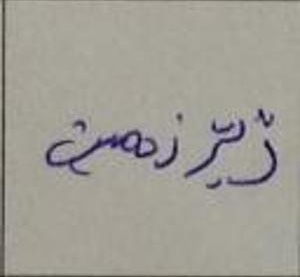 زیر زمین